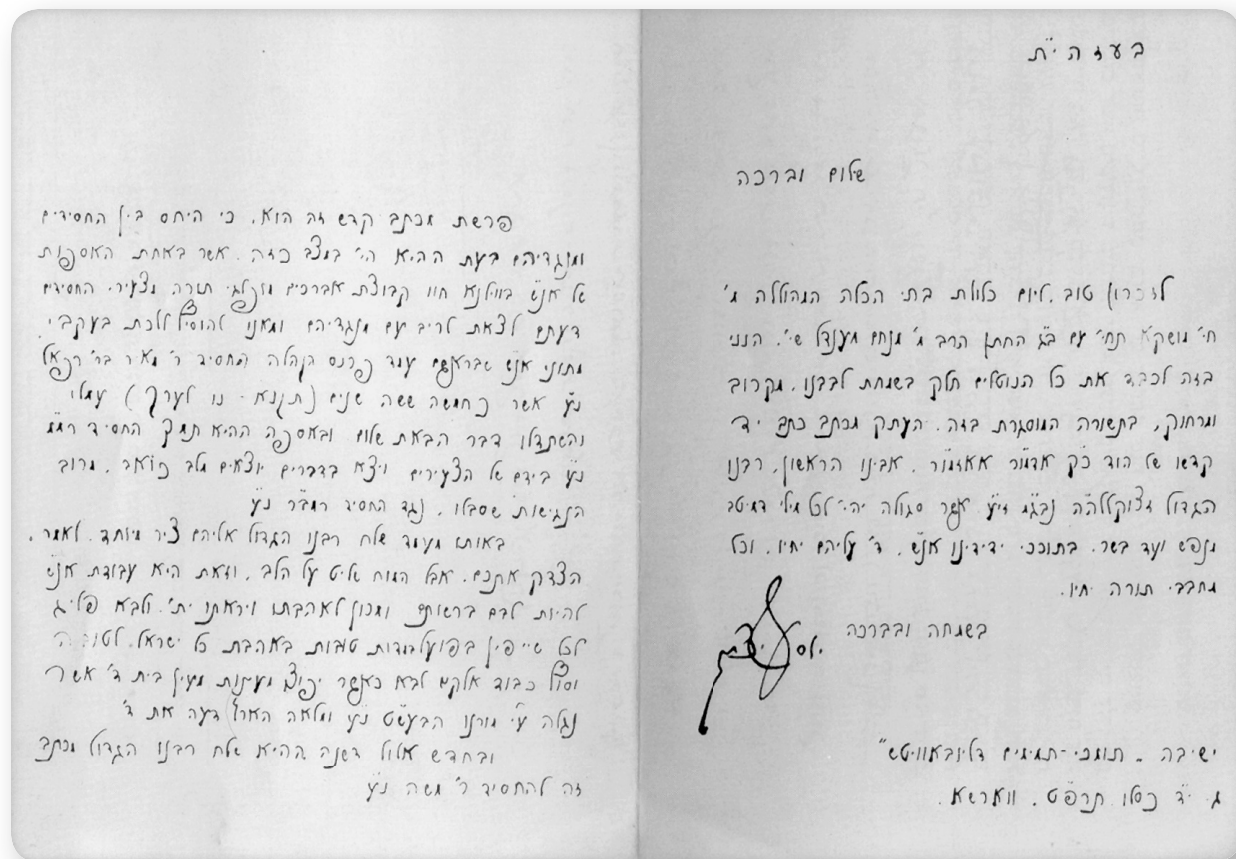 בעזה״ת
שלום וברכה
לזכרון טוב, ליום כלולת בתי הכלה המהוללה מ׳
חי׳ מושקא תחי׳ עם ב״ג החתן הרב מ׳ מנחם מענדל שי׳, הנני
בזה לכבד את כל הנוטלים חלק בשמחת לבבנו, מקרוב
ומרחוק, בתשורה המוסגרת בזה, העתק מכתב כתב יד
קדשו של הוד כ״ק אדמו״ר אאזמו״ר, אבינו הראשון, רבנו
הגדול זצוקללה״ה נבג״מ זי״ע אשר סגולה יהי׳ לכל מילי דמיטב
מנפש ועד בשר, בתוככי ידידינו אנ״ש, ד׳ עליהם יחיו, וכל
מחבבי תורה יחיו.
בשמחה ובברכה
יוסף יצחק
ישיבה „תומכי-תמימים דליובאוויטש״
ג׳ י״ד כסלו תרפ״ט, ווארשא.
פרשת מכתב קדש זה הוא, כי היחס בין החסידים
ומנגדיהם בעת ההיא הי׳ במצב כזה, אשר באחת האספות
של אנ״ש בווילנא חוו קבוצת אברכים מופלגי תורה מצעירי החסידים
דעתם לצאת לריב עם מנגדיהם ומאנו להוסיף ללכת בעקבי
מתוני אנ״ש שבראשם עמד פרנס הקהלה החסיד ר׳ מאיר בר׳ רפאל
נ״ע אשר כחמשה ששה שנים (תקנ״א - נו לערך) עמלו
והשתדלו דבר הבאת שלום ובאספה ההיא תמך החסיד
נ״ע בידם של הצעירים ויצא בדברים יוצאים מלב כואב, מרוב
הנגישות שסבלו, נגד החסיד רמב״ר נ״ע
באותו מעמד שלח רבנו הגדול אליהם ציר מיוחד, לאמר,
הצדק אתכם, אבל המוח שליט על הלב, וזאת היא עבודת אנ״ש
להיות לבם ברשותם ומכון לאהבתו ויראתו ית׳, ולבא
לכל בפועל במדות טובות באהבת כל ישראל, לטובה
וסוף כבוד אלקים לבא כאשר יפוצו מעינות מעין בית ד׳ אשר
נגלה ע״י מורנו הבעש״ט נ״ע ומלאה הארץ דעה את ד׳
ובחדש אלול דשנה ההיא שלח רבנו הגדול מכתב
זה להחסיד ר׳ משה נ״ע